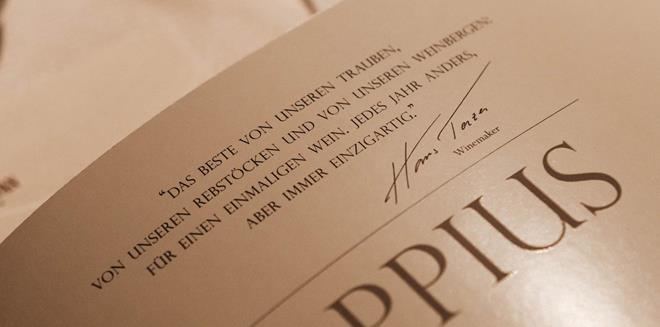 “DAS BESTE VON UNSEREN TRAUBEN,
VON UNSEREN REBSTÖCKEN UND VON UNSEREN WEINBERGEN:
FÜR EINEN EINMALIGEN WEIN. JEDES JAHR ANDERS,
ABER IMMER EINZIGARTIG.”
Hans Terzer
Winemaker
PPIUS